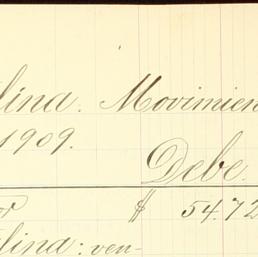 lina. Movimien
1909.
Debe.
or $ 54.72
lina: ven-